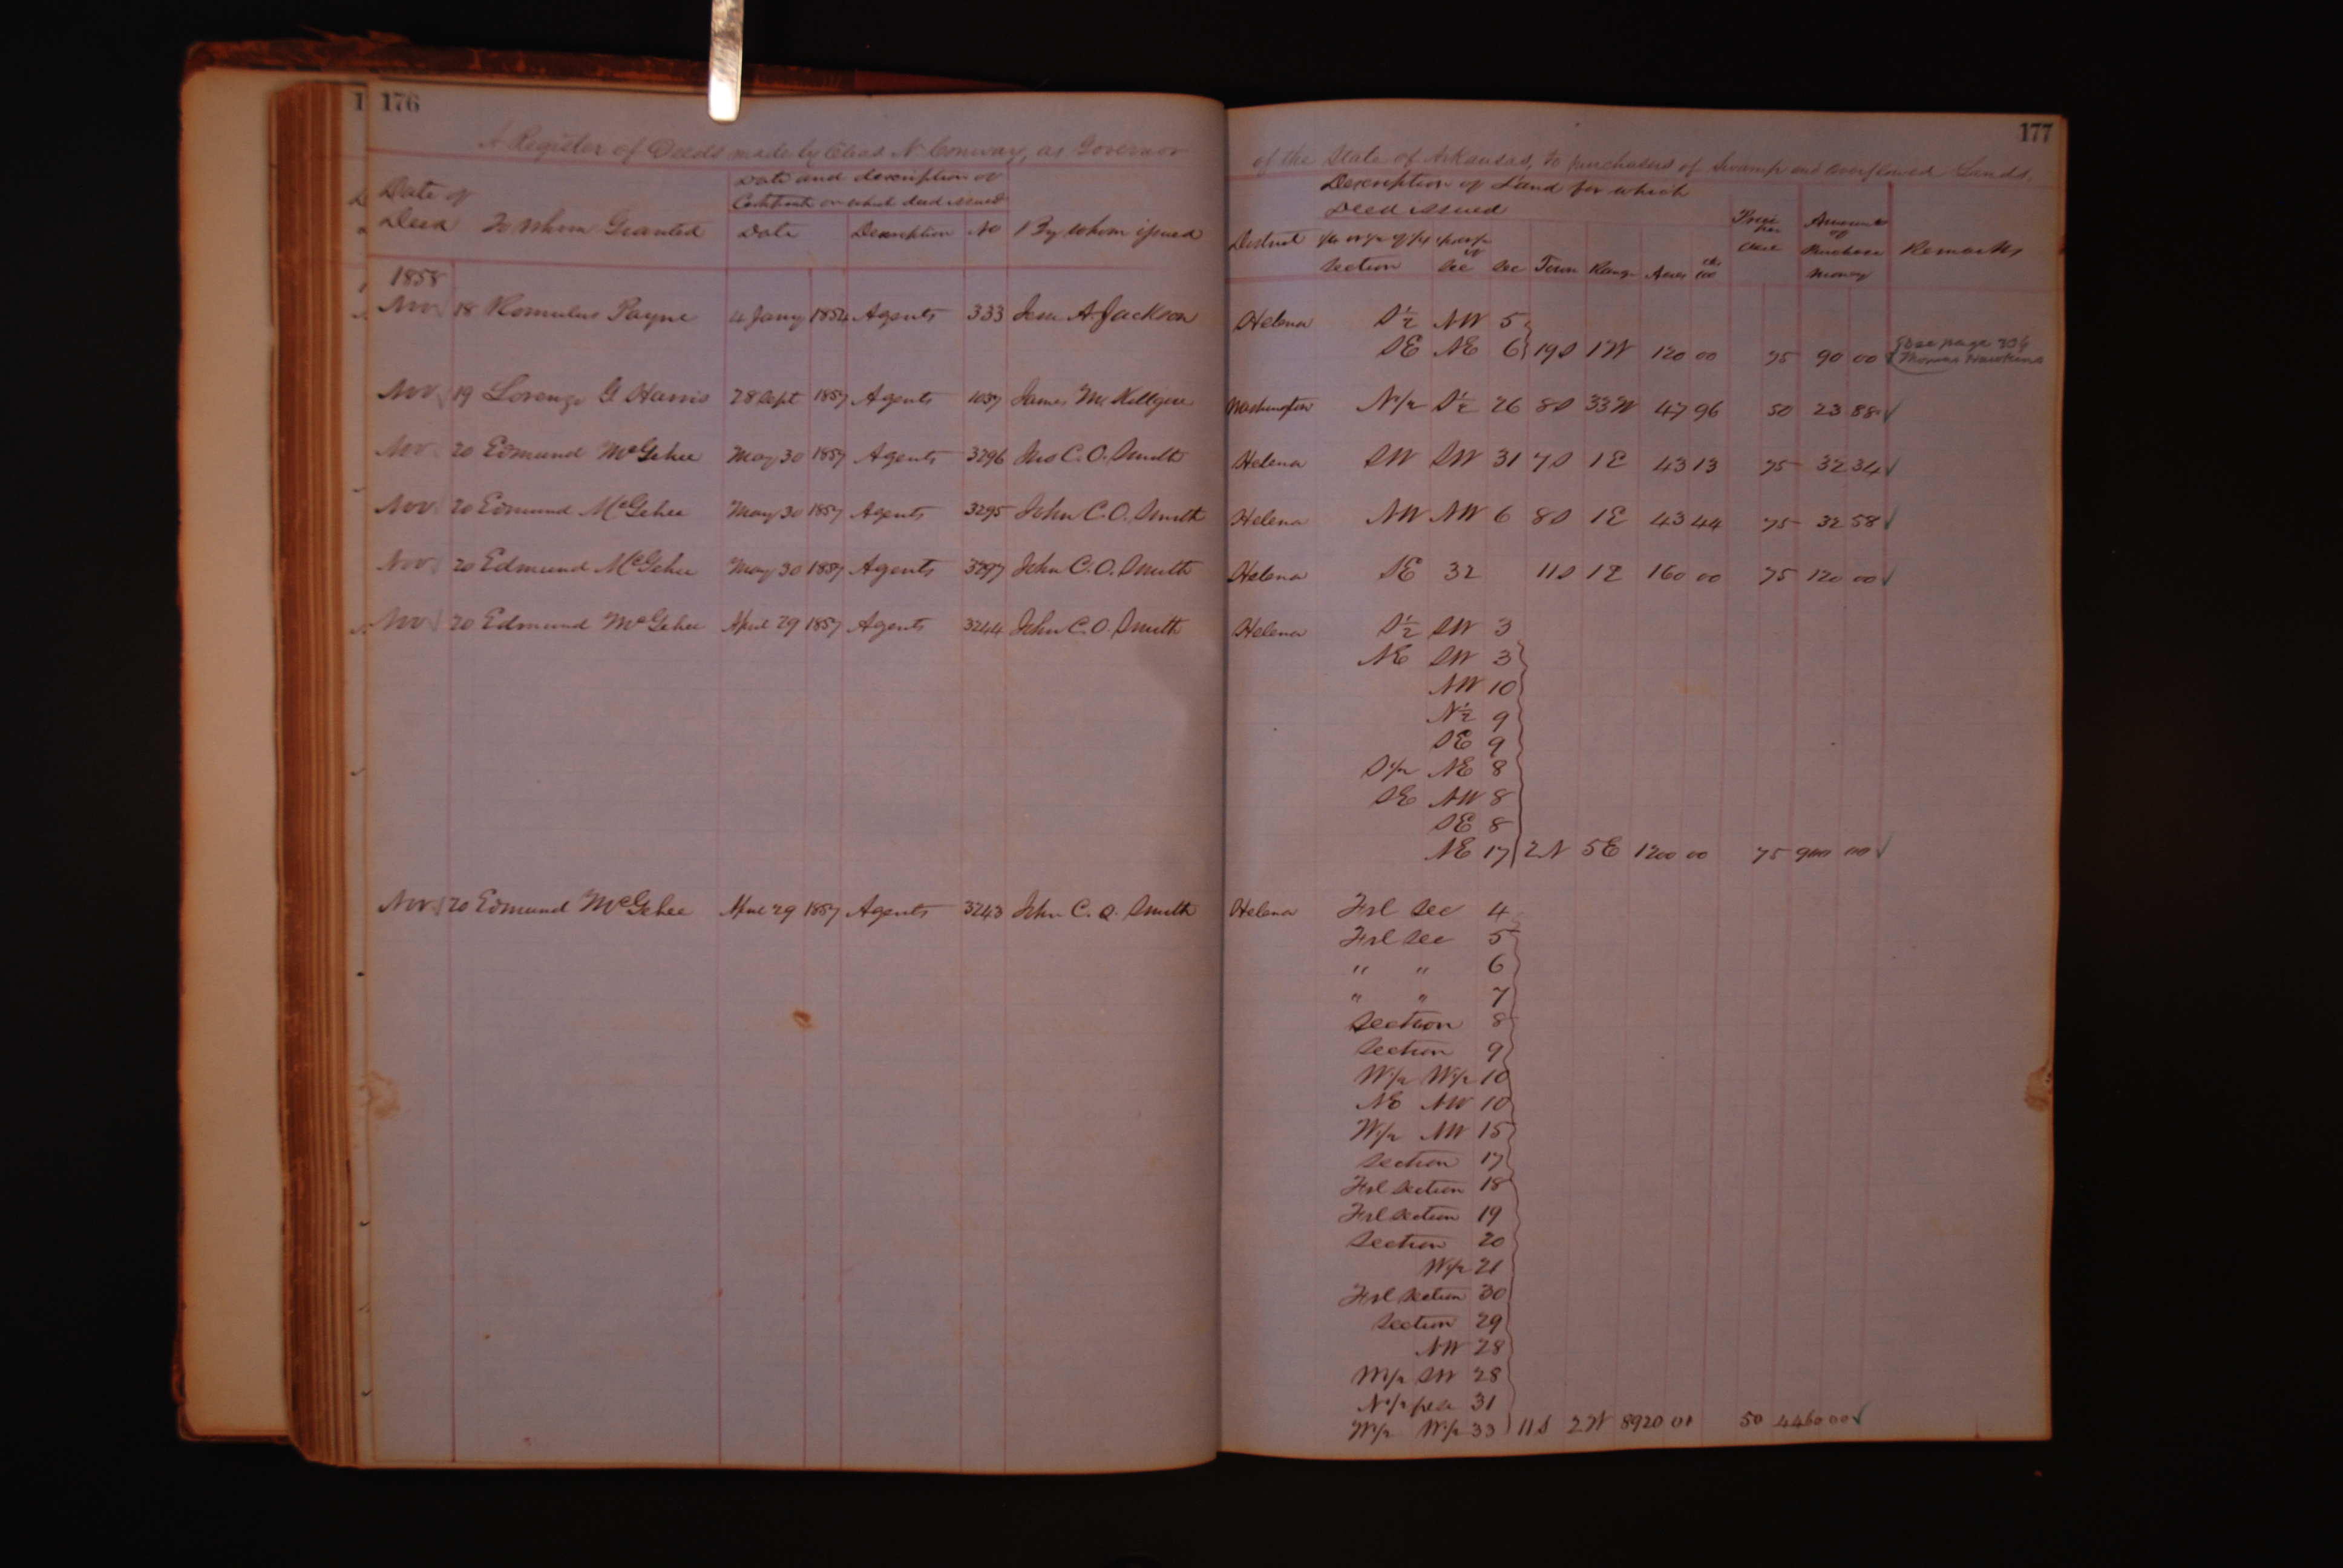 176
177
A Register of Deeds made by Elias N. Conway, as Governor of the State of Arkansas, to purchasers of Swamp and overflowed Lands.
Date of Deed To Whom Granted Date and description of Certificate on which deed issued By whom issued Description of Land for which Deed issued Price per Acre Amount of Purchase Money Remarks
Date Description No District Section Sec Sec Town Range Acres
1858
Nov 18 Romulus Payne 4 Jany 1854 Agents 333 Jesse A. Jackson Helena S½ NW 5
SE NE 6 19S 1W 120 00 75 90 00 See page 336 Thomas Hawkins
Nov 19 Lorenzo G Harris 28 Sept 1857 Agents 1037 James McKilligan Washington N/2 S½ 26 8S 33W 47 96 50 23 88 ✓
Nov 20 Edmund McGehee May 30 1857 Agents 3296 Jno C. O. Smith Helena SW SW 31 7S 1E 43 13 75 32 34 ✓
Nov 20 Edmund McGehee May 30 1857 Agents 3295 John C. O. Smith Helena NW NW 6 8S 1E 43 44 75 32 58 ✓
Nov 20 Edmund McGehee May 30 1857 Agents 3297 John C. O. Smith Helena SE 32 11S 1E 160 00 75 120 00 ✓
Nov 20 Edmund McGehee April 29 1857 Agents 3244 John C. O. Smith Helena S½ SW 3
NE SW 3
NW 10
N½ 9
SE 9
S1/2 NE 8
SE NW 8
SE 8
NE 17 2N 5E 1200 00 75 900 00 ✓
Nov 20 Edmund McGehee April 29 1857 Agents 3243 John C. O. Smith Helena Frl Sec 4
Frl Sec 5
" " 6
" " 7
Section 8
Section 9
W1/2 W1/2 10
NE NW 10
W1/2 NW 15
Section 17
Frl Section 18
Frl Section 19
Section 20
W1/2 21
Frl Section 30
Section 29
NW 28
W1/2 SW 28
31
W1/2 W1/2 33 11S 2W 8920 00 50 4460 00 ✓